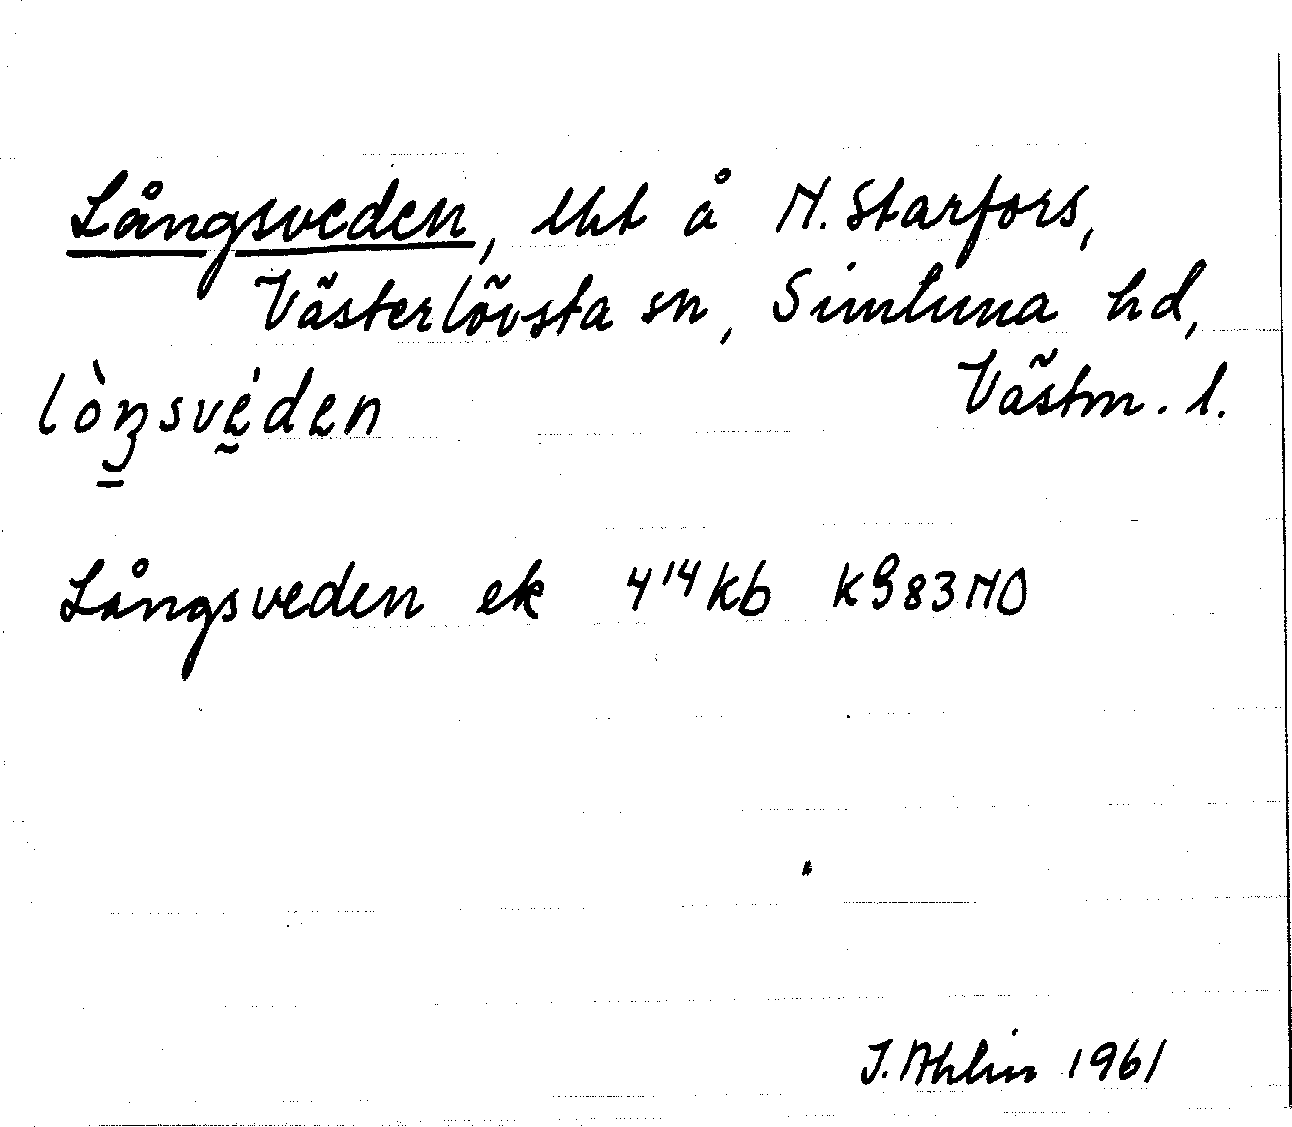 Långsveden, lht å N. Starfors,
Västerlövsta sn, Simtuna hd,
Västm. l.
lòŋsvéden
Långsveden ek 4¹⁴ kb K983NO
J. Ahlin 1961